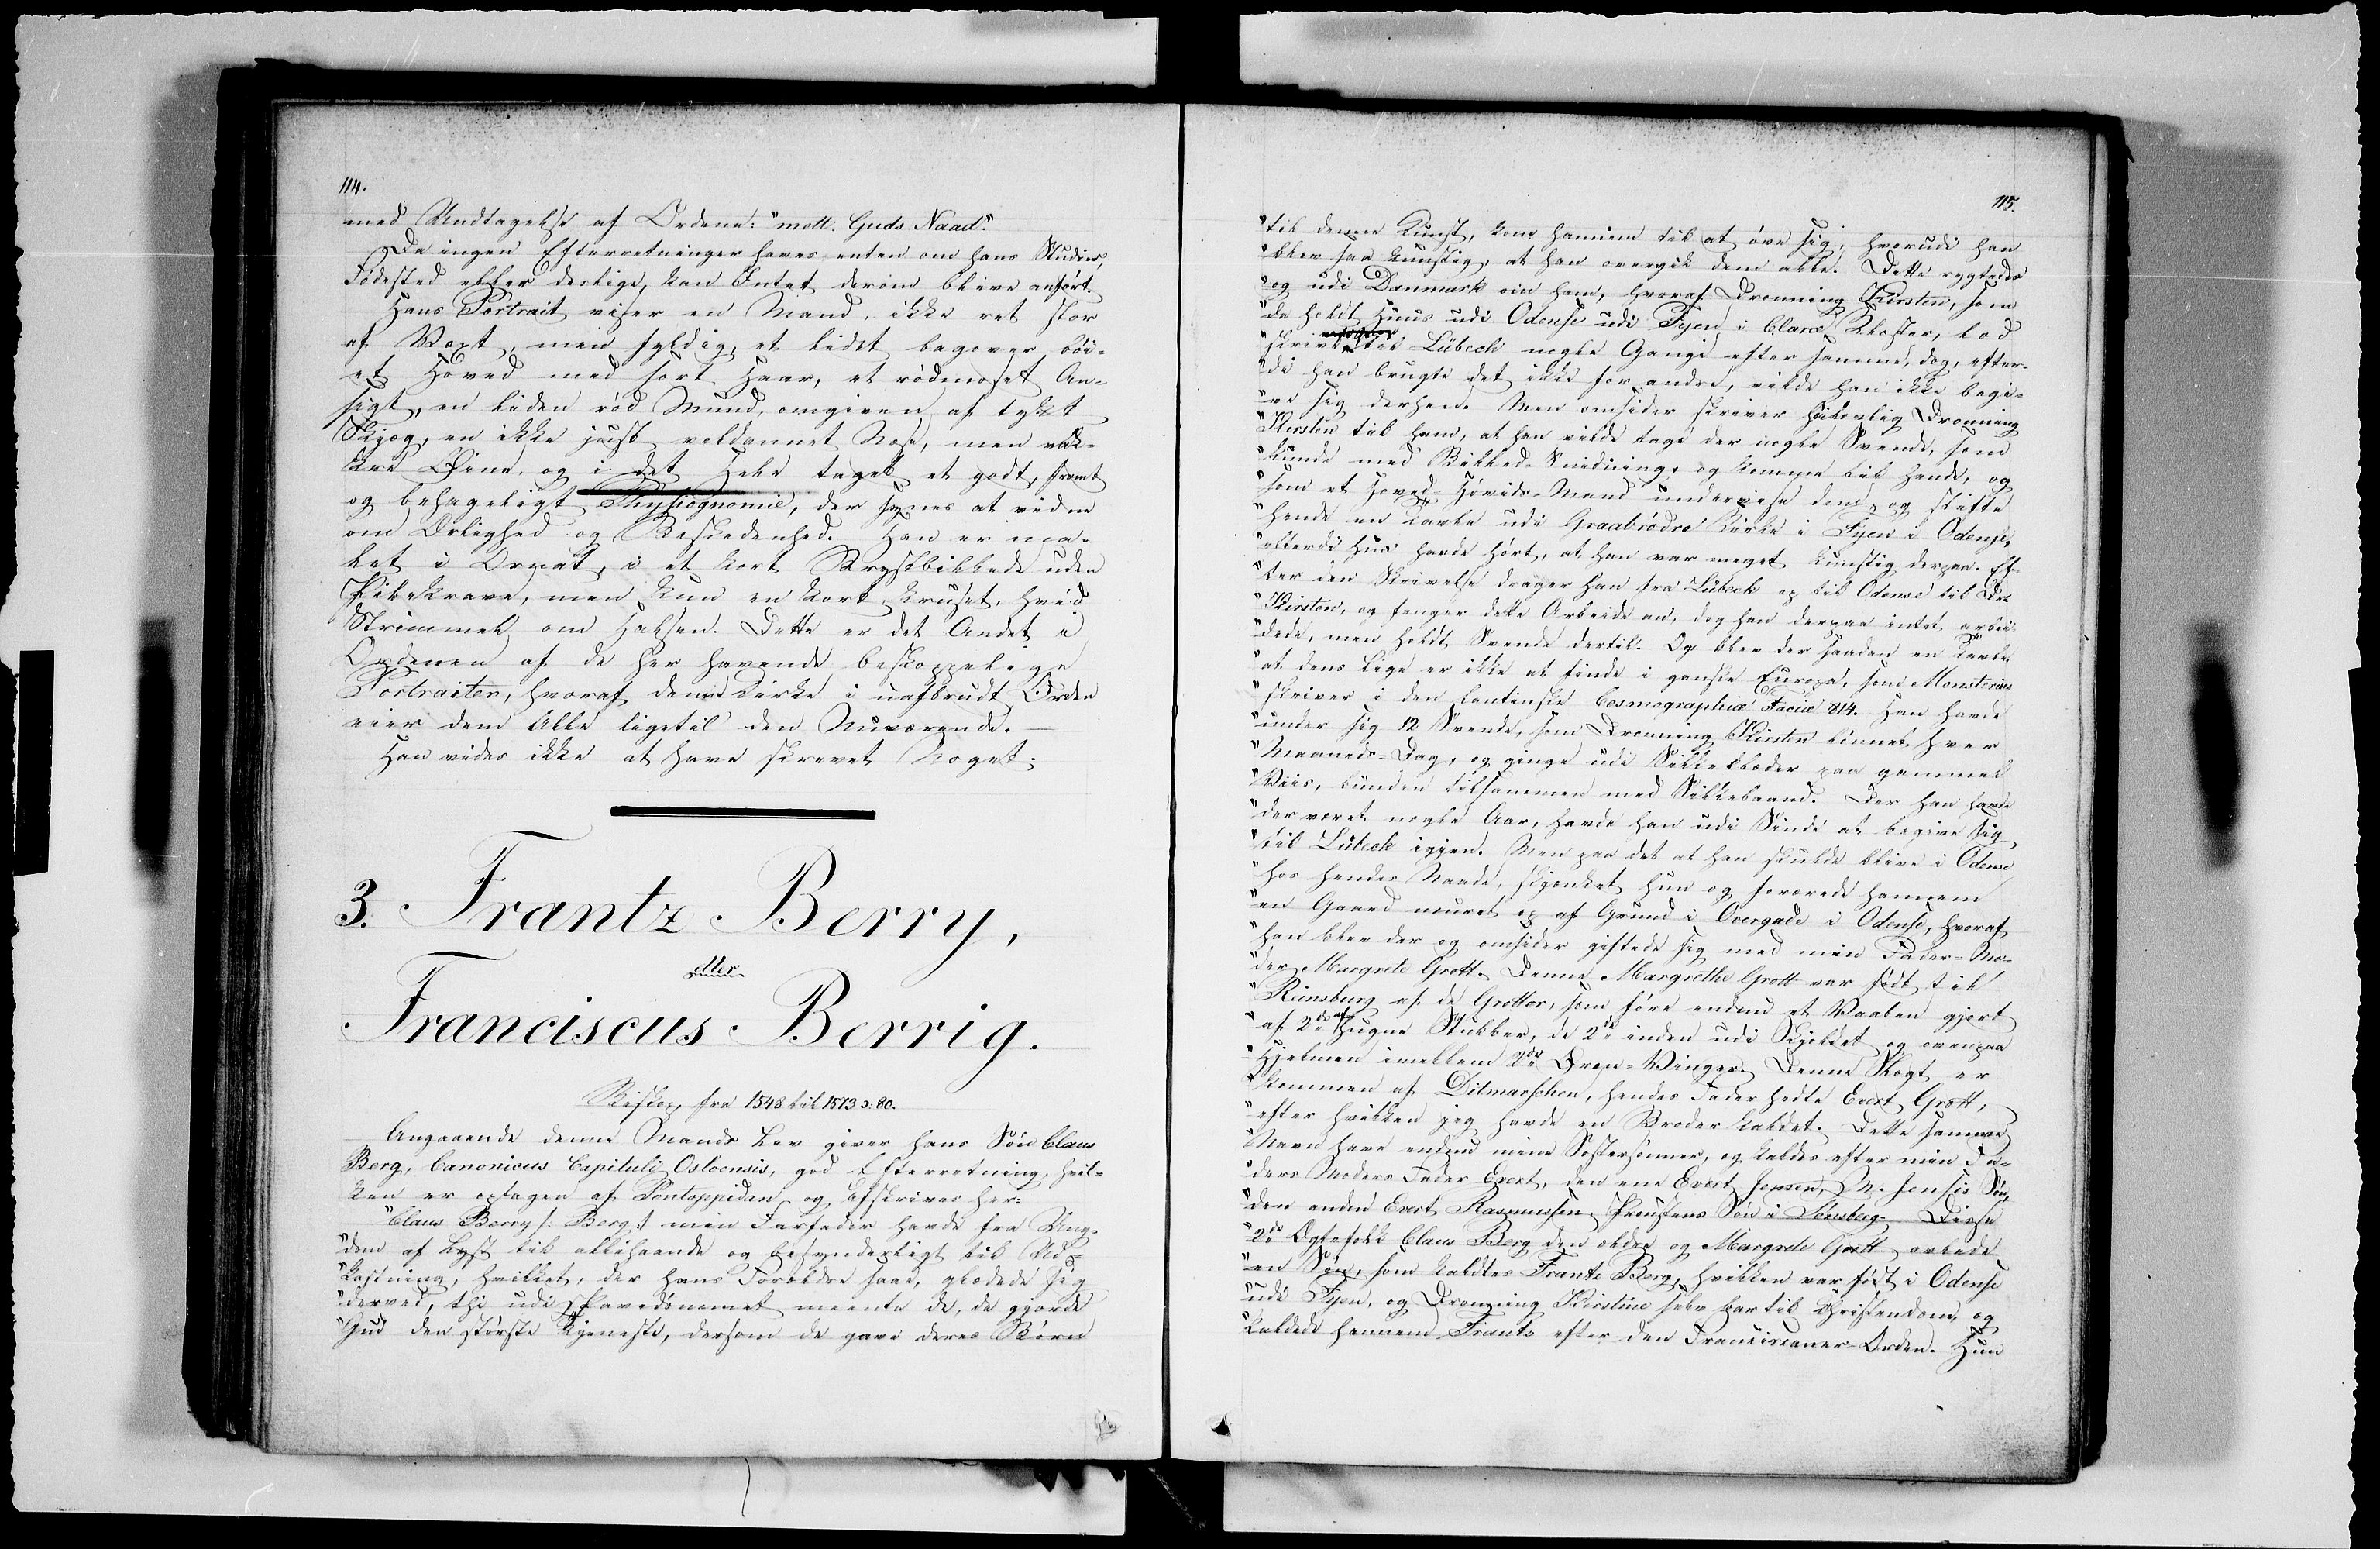 114.
med Undtagelse af Ordene: "mett. Guds Naad".
Da ingen Efterretninger haves enten om hans Studier,
Fødested eller deslige, kan Intet derom blive anført.
Hans Portrait viser en Mand, ikke ret stor
af Vext, men fyldig, et lidt bagover böi-
et Hoved med sort Haar, et rödmoset An-
sigt, en liden röd Mund, omgiven af tykt
Skjæg, en ikke just veldannet Næse, men vak-
kre Øine, og i det Hele taget et godt, fromt
og behageligt Physiognomie, der synes at vidne
om Ærlighed og Beskedenhed. Han er ma-
let i Ornat, i et kort Brystbillede uden
Pibekrave, men kun en kort, kruset, hvid
Strimmel om Halsen. Dette er det Andet i
Ordenen af de her havende bispelige
Portraiter, hvoraf denne Kirke i uafbrudt Orden
eier dem Alle ligetil den Nuværende.
Han vides ikke at have skrevet Noget.
3. Frantz Berry,
eller
Franciscus Berrig.
Biskop fra 1548 til 1573 ɔ: 80.
Angaaende denne Mands Lev giver hans Sön Claus
Berg, Canonicus Capituli Osloensis, god Efterretning, hvil-
ken er optagen af Pontoppidan og afskrives her:
"Claus Berry /: Berg :/ min Farfader havde fra Ung-
"dom af Lyst til allehaande og besynderligt til Ud-
"kastning, hvilket, der hans Forældre saae, glædede sig
"derved, thi udi Pavedömmet meente de, de gjorde
"Gud den störste Tjeneste, dersom de gave deres Börn
115.
"til denne Kunst, kom hannem til at öve sig, hvorudi han
"blev saa kunstig, at han overgik dem alle. Dette rygtedes
"og udi Danmark om ham, hvoraf Dronning Kirsten, som
"da holdt Huus udi Odense udi Fyen i Claræ Kloster, lod
"skrive til Lübeck nogle Gange efter hannem, dog, efter-
"di han brugte det ikke for andre, vilde han ikke begi-
"ve sig derhen. Men omsider skriver höilovlig Dronning
"Kirsten til ham, at han vilde tage der nogle Svende, som
"kunde med Billed-Snidning, og komme til hende, og
"som et Hoved-Hövids-Mand underviise dem, og stifte
"hende en Tavle udi Graabrödre Kirke i Fyen i Odense,
"efterdi hun havde hört, at han var meget kunstig derpaa. Ef-
"ter den Skrivelse drager han fra Lübeck og til Odense til Dr.
"Kirsten, og fanger dette Arbeide an, dog han derpaa intet arbei-
"dede, men holdt Svende dertil. Og blev der saadan en Tavle,
"at dens lige er ikke at finde i ganske Europa, som Monsterus
"skriver i den Latinske Cosmographia Facie 814. Han havde
"under sig 12 Svende, som Dronning Kirsten lönnet hver
"Maaneds-Dag, og ginge udi Silkeklæder paa gammel
"Viis, bunden tilsammen med Silkebaand. Der han havde
"der været nogle Aar, havde han udi Sinde at begive sig
"til Lübeck igjen. Men paa det at han skulde blive i Odense
"hos hendes Naade, skjenket hun og forærede hannem
"en Gaard muret op af Grund i Overgade i Odense, hvoraf
"han blev der og omsider giftede sig med min Fader-Mo-
"der Margrete Grott. Denne Margrethe Grott var född til
"Rensburg af de Grotter, som före endnu et Vaaben gjort
"af 2de Stubber, de 2de inden udi Skjoldet og ovenpaa
"Hjelmen imellem 2de Örne-Vinger. Denne Slægt er
"kommen af Ditmarschen, hendes Fader hedte Evert Grott,
"efter hvilken jeg havde en Broder kaldet. Dette samme
"Navn have endnu mine Söstersönner, og kaldes efter min Fa-
"ders Moders Fader Evert, den ene Evert Jensen, M. Jenses Sön,
"den anden Evert Rasmussen, Provstens Sön i Tönsberg. Disse
"2de Ægtefolk Claus Berg den ældre og Margrete Grott avlede
"en Sön, som kaldtes Frants Berg, hvilken var föd i Odense
"udi Fyen, og Dronning Kirstine selv bar til Christendom, og
"kaldede hannem Frants efter den Franciscaner-Orden. Hun